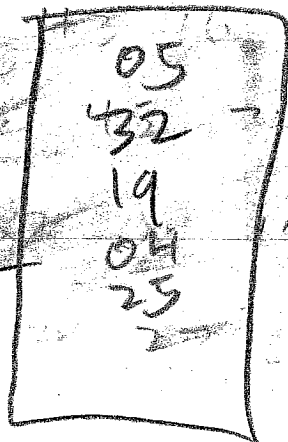 05
32
19
04
25
2